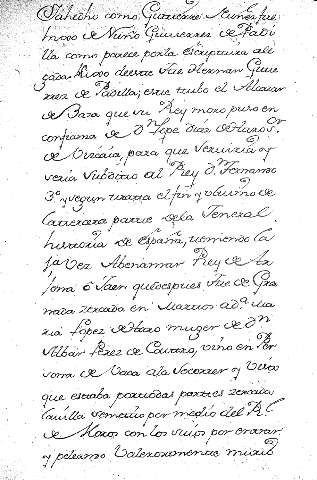 Sabeihe como Gutierrez Nuñez fue
hixo de Nuño Gutierrez de Padi
lla como parece por la escriptura ale
gada. hixo deeste fue Hernan Gutie
rrez de Padilla; este tubo el Alcazar
de Baza que su Rey moro puso en
confianza de Dn Lope diaz de Haro Sor
de Vizcaia, para que serviria y
seria subdito al Rey Dn Fernando
3o y segun trata el fin y ultimo de
la tercera parte de la General
historia de españa, teniendo la
1a Vez Abenamar Rey de Ar
jona ó Jaen que despues fue de Gra
nada zercada en Martos a da Ma
ria Lopez de Haro muger de Dn
Albar Perez de Castro, vino en Per
sona de Baza a la socorrer y Visto
que estaba por todas partes zercada
la villa se metio por medio del Rl
de Moros con los suios por entrar
y peleando Valerosamente murio